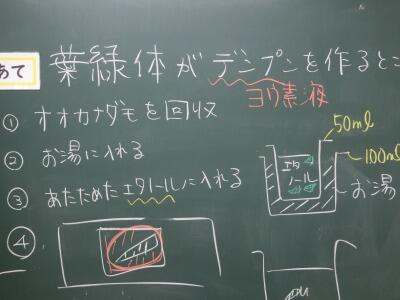 めあて 葉緑体がデンプンを作ると
ヨウ素液
① オオカナダモを回収
② お湯に入れる
③ あたためたエタノールに入れる
④
50ml
100ml
お湯
エタ
ノール